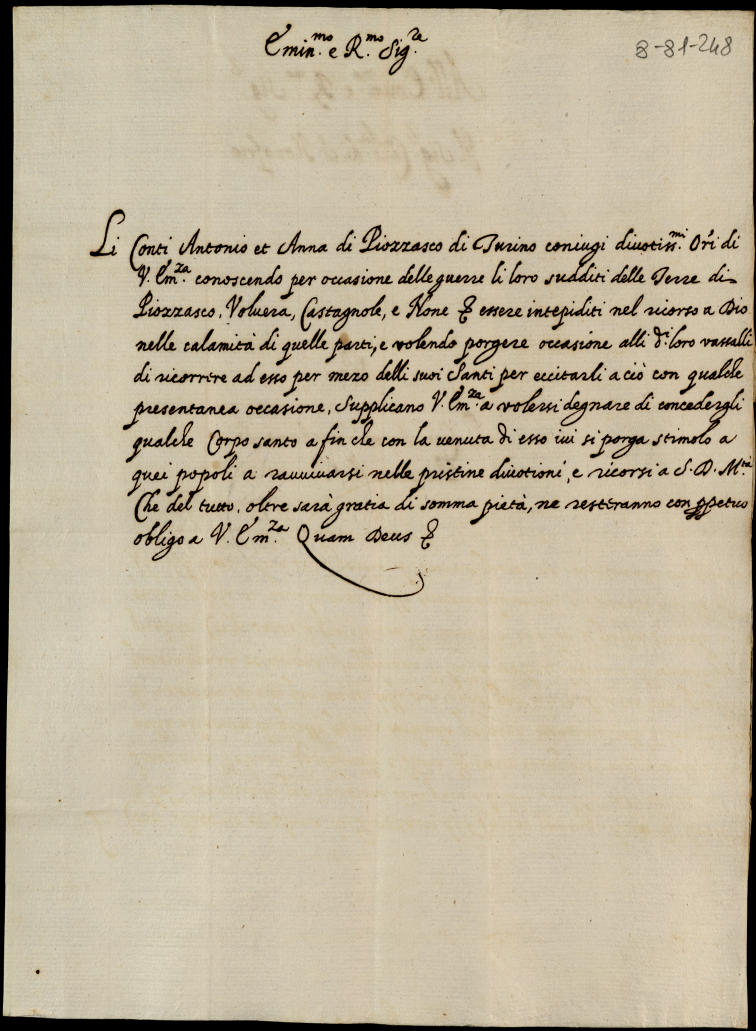 Emin.mo e R.mo Sig.re
8-81-248
Li Conti Antonio et Anna di Piozzasco di Turino coniugi diuotiss.mi Ori di
V. Em.za conoscendo per occasione delle guerre li loro sudditi delle Terre di
Piozzasco, Voluera, Castagnole, e None essere intepiditi nel ricorso a Dio
nelle calamità di quelle parti, e volendo porgere occasione alli d.i loro vassalli
di ricorrere ad esso per mezo delli suoi Santi per eccitarli a ciò con qualche
presentanea occasione, Supplicano V. Em.za a volersi degnare di concedergli
qualche Corpo santo a fin che con la venuta di esso iui si porga stimolo a
quei popoli a rauuiuarsi nelle pristine diuotioni, e ricorsi a S. D. M.tà
Che del tutto, oltre sarà gratia di somma pietà, ne resteranno con ppetuo
obligo a V. Em.za Quam Deus